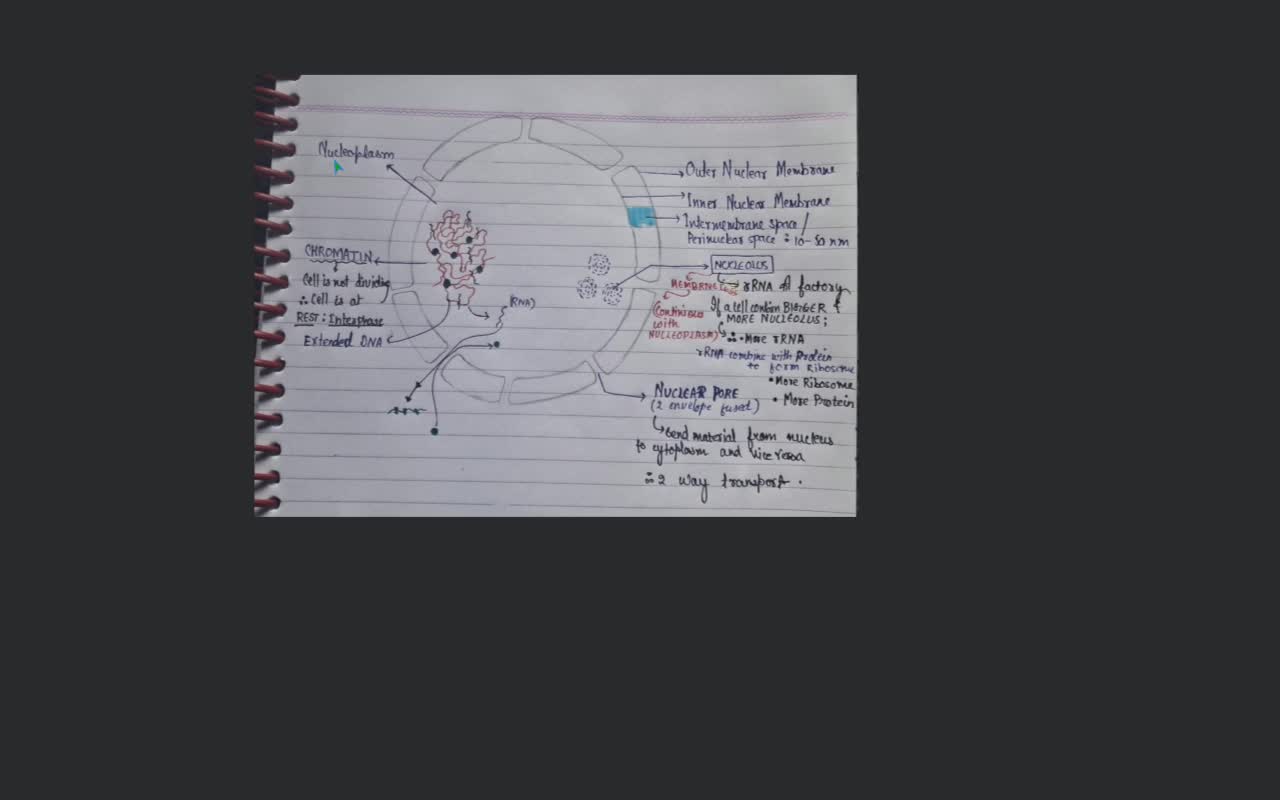 Nucleoplasm
CHROMATIN
Cell is not dividing
∴ Cell is at
REST : Interphase
Extended DNA
RNA)
Outer Nuclear Membrane
Inner Nuclear Membrane
Intermembrane space /
Perinuclear space : 10-50 nm
NUCLEOLUS
MEMBRANELESS
rRNA factory
(Continuous
with
NUCLEOPLASM)
If a cell contain BIGGER &
MORE NUCLEOLUS;
∴ • More rRNA
rRNA combine with Protein
to form Ribosome
• More Ribosome
• More Protein
NUCLEAR PORE
(2 envelope fused)
Send material from nucleus
to cytoplasm and vice versa
∴ 2 way transport.